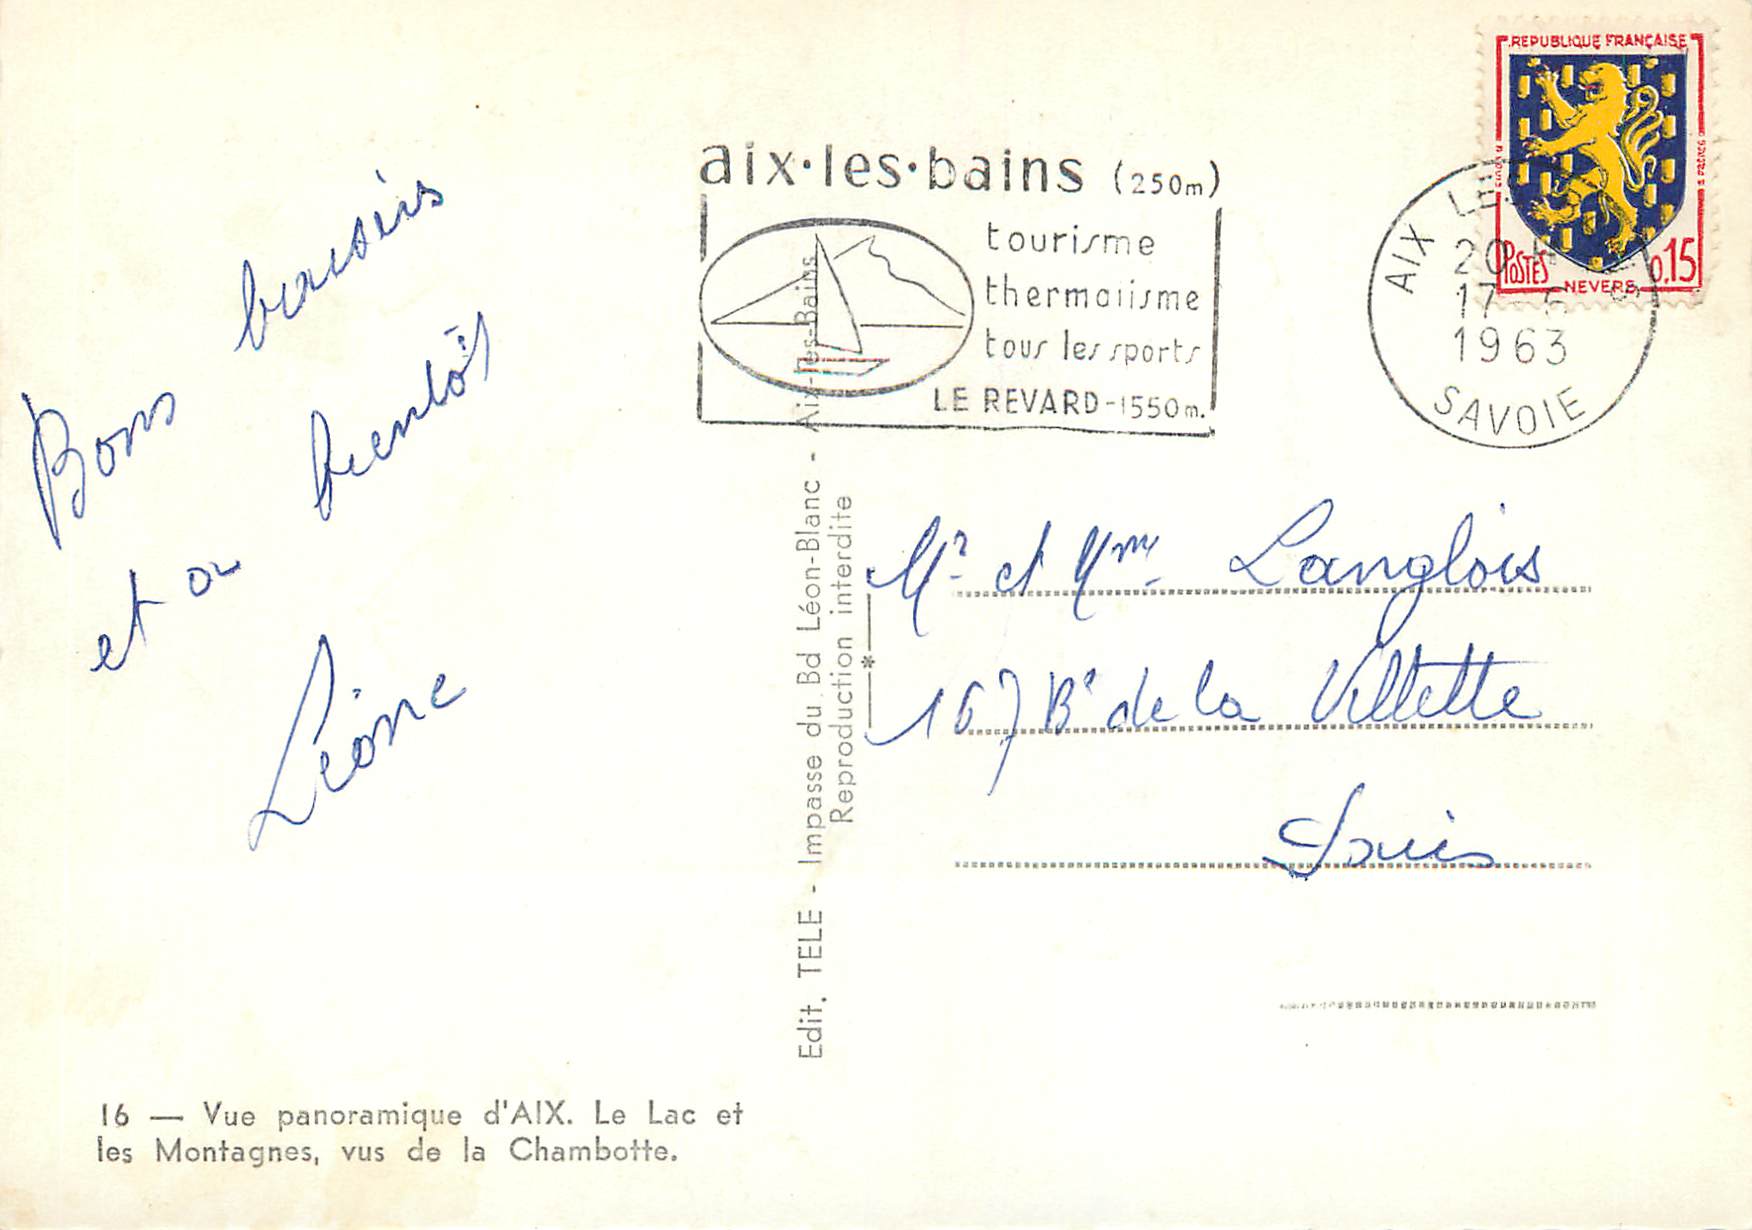 Bons baisers
et au bientôt
Léone
16 — Vue panoramique d'AIX. Le Lac et
les Montagnes, vus de la Chambotte.
Edit. TELE - Impasse du Bd Léon-Blanc - Aix-les-Bains
Reproduction interdite
aix·les·bains (250m)
tourisme
thermalisme
tous les sports
LE REVARD-1550m.
REPUBLIQUE FRANÇAISE
POSTES
0,15
NEVERS
AIX LES
20 H
17 - 6
1963
SAVOIE
Mr et Mme Langlois
167 Bd de la Villette
Paris